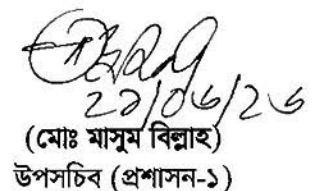 ২১/০৬/২৬
(মোঃ মাসুম বিল্লাহ)
উপসচিব (প্রশাসন-১)